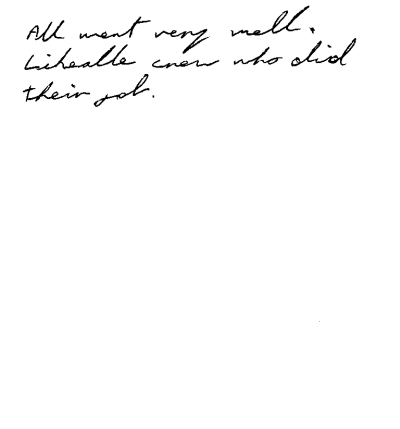 All went very well.
Likeable crew who did
their job.